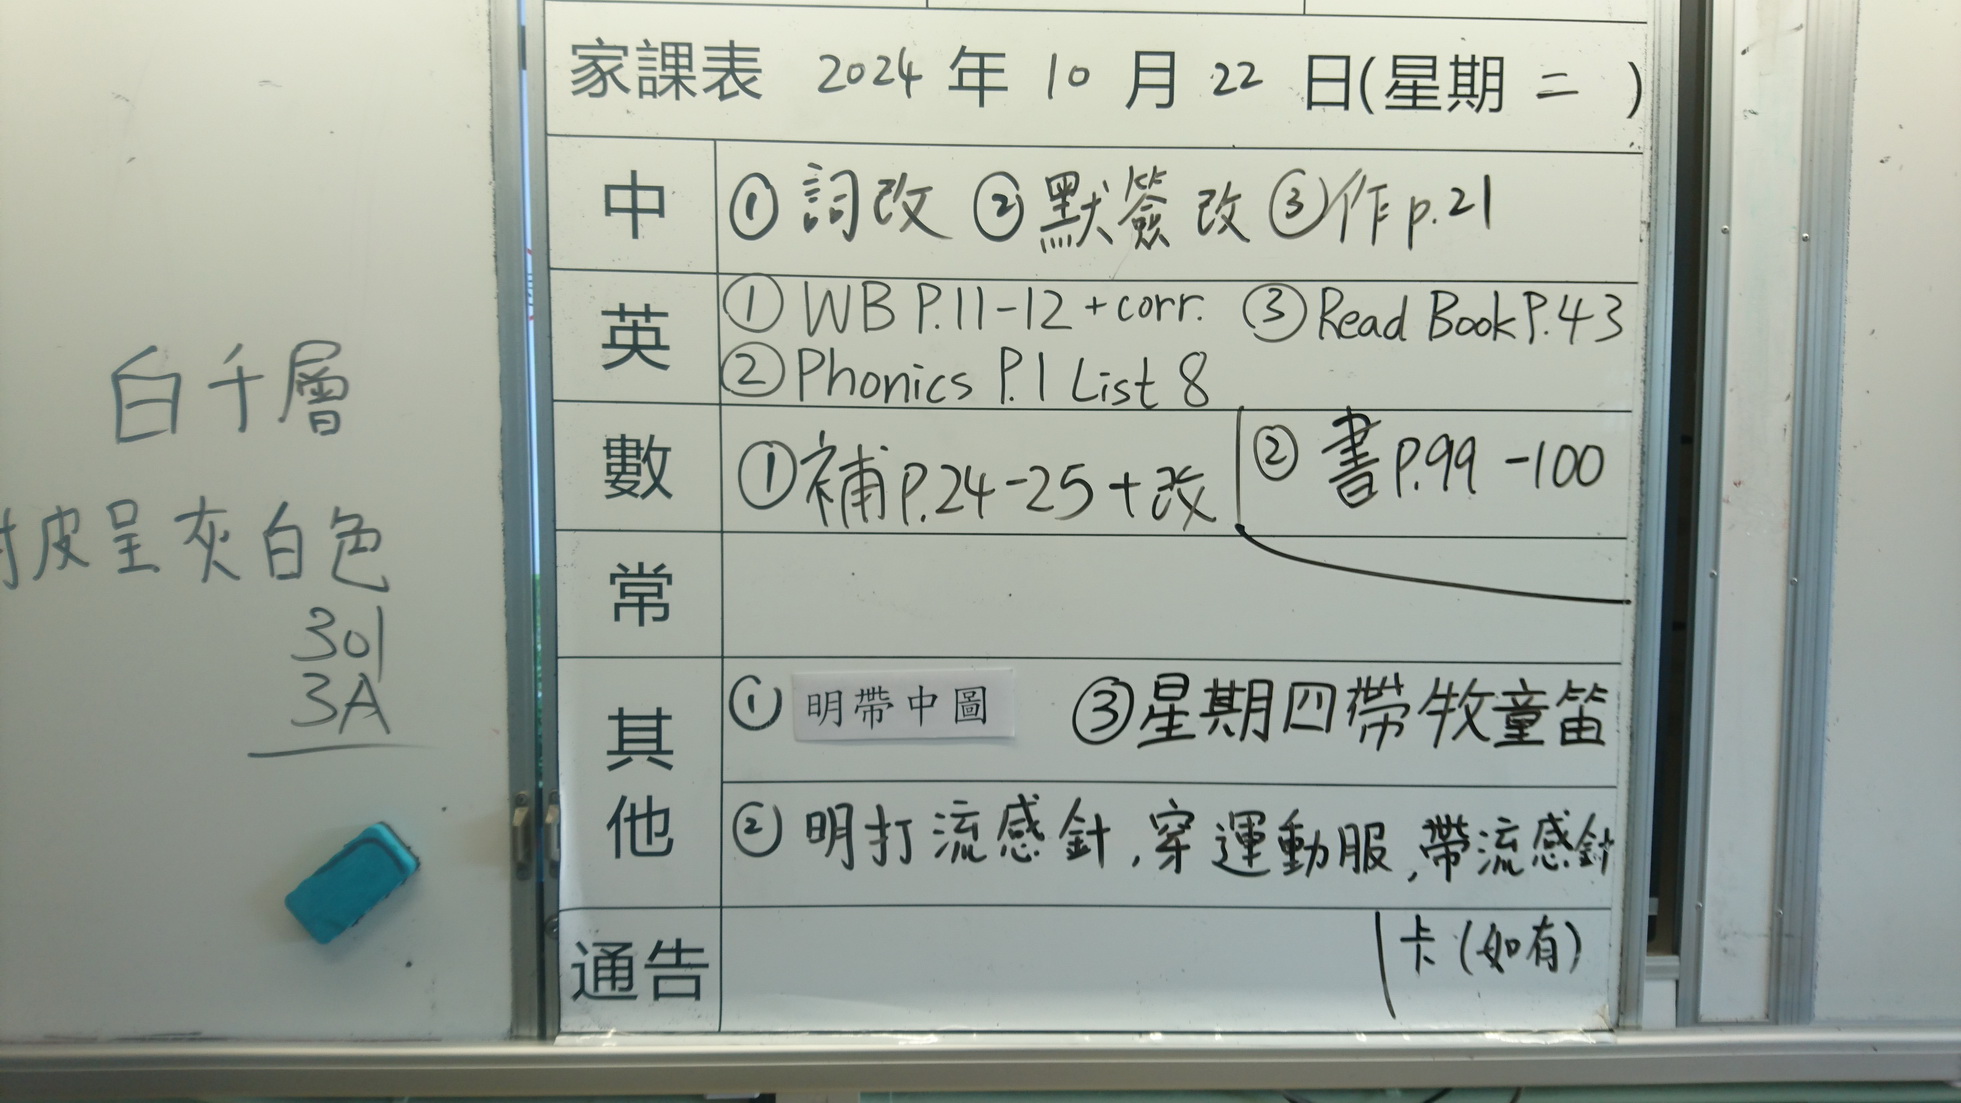 家課表 2024 年 10 月 22 日(星期 二 )
中 ① 詞改 ② 默簽改 ③ 作 p.21
英 ① WB P.11-12 + corr. ③ Read Book P.43
② Phonics P.1 List 8
數 ① 補 P.24-25 + 改 ② 書 P.99-100
常
其他 ① 明帶中圖 ③ 星期四帶牧童笛
② 明打流感針,穿運動服,帶流感針
卡(如有)
通告
白千層
皮呈灰白色
301
3A